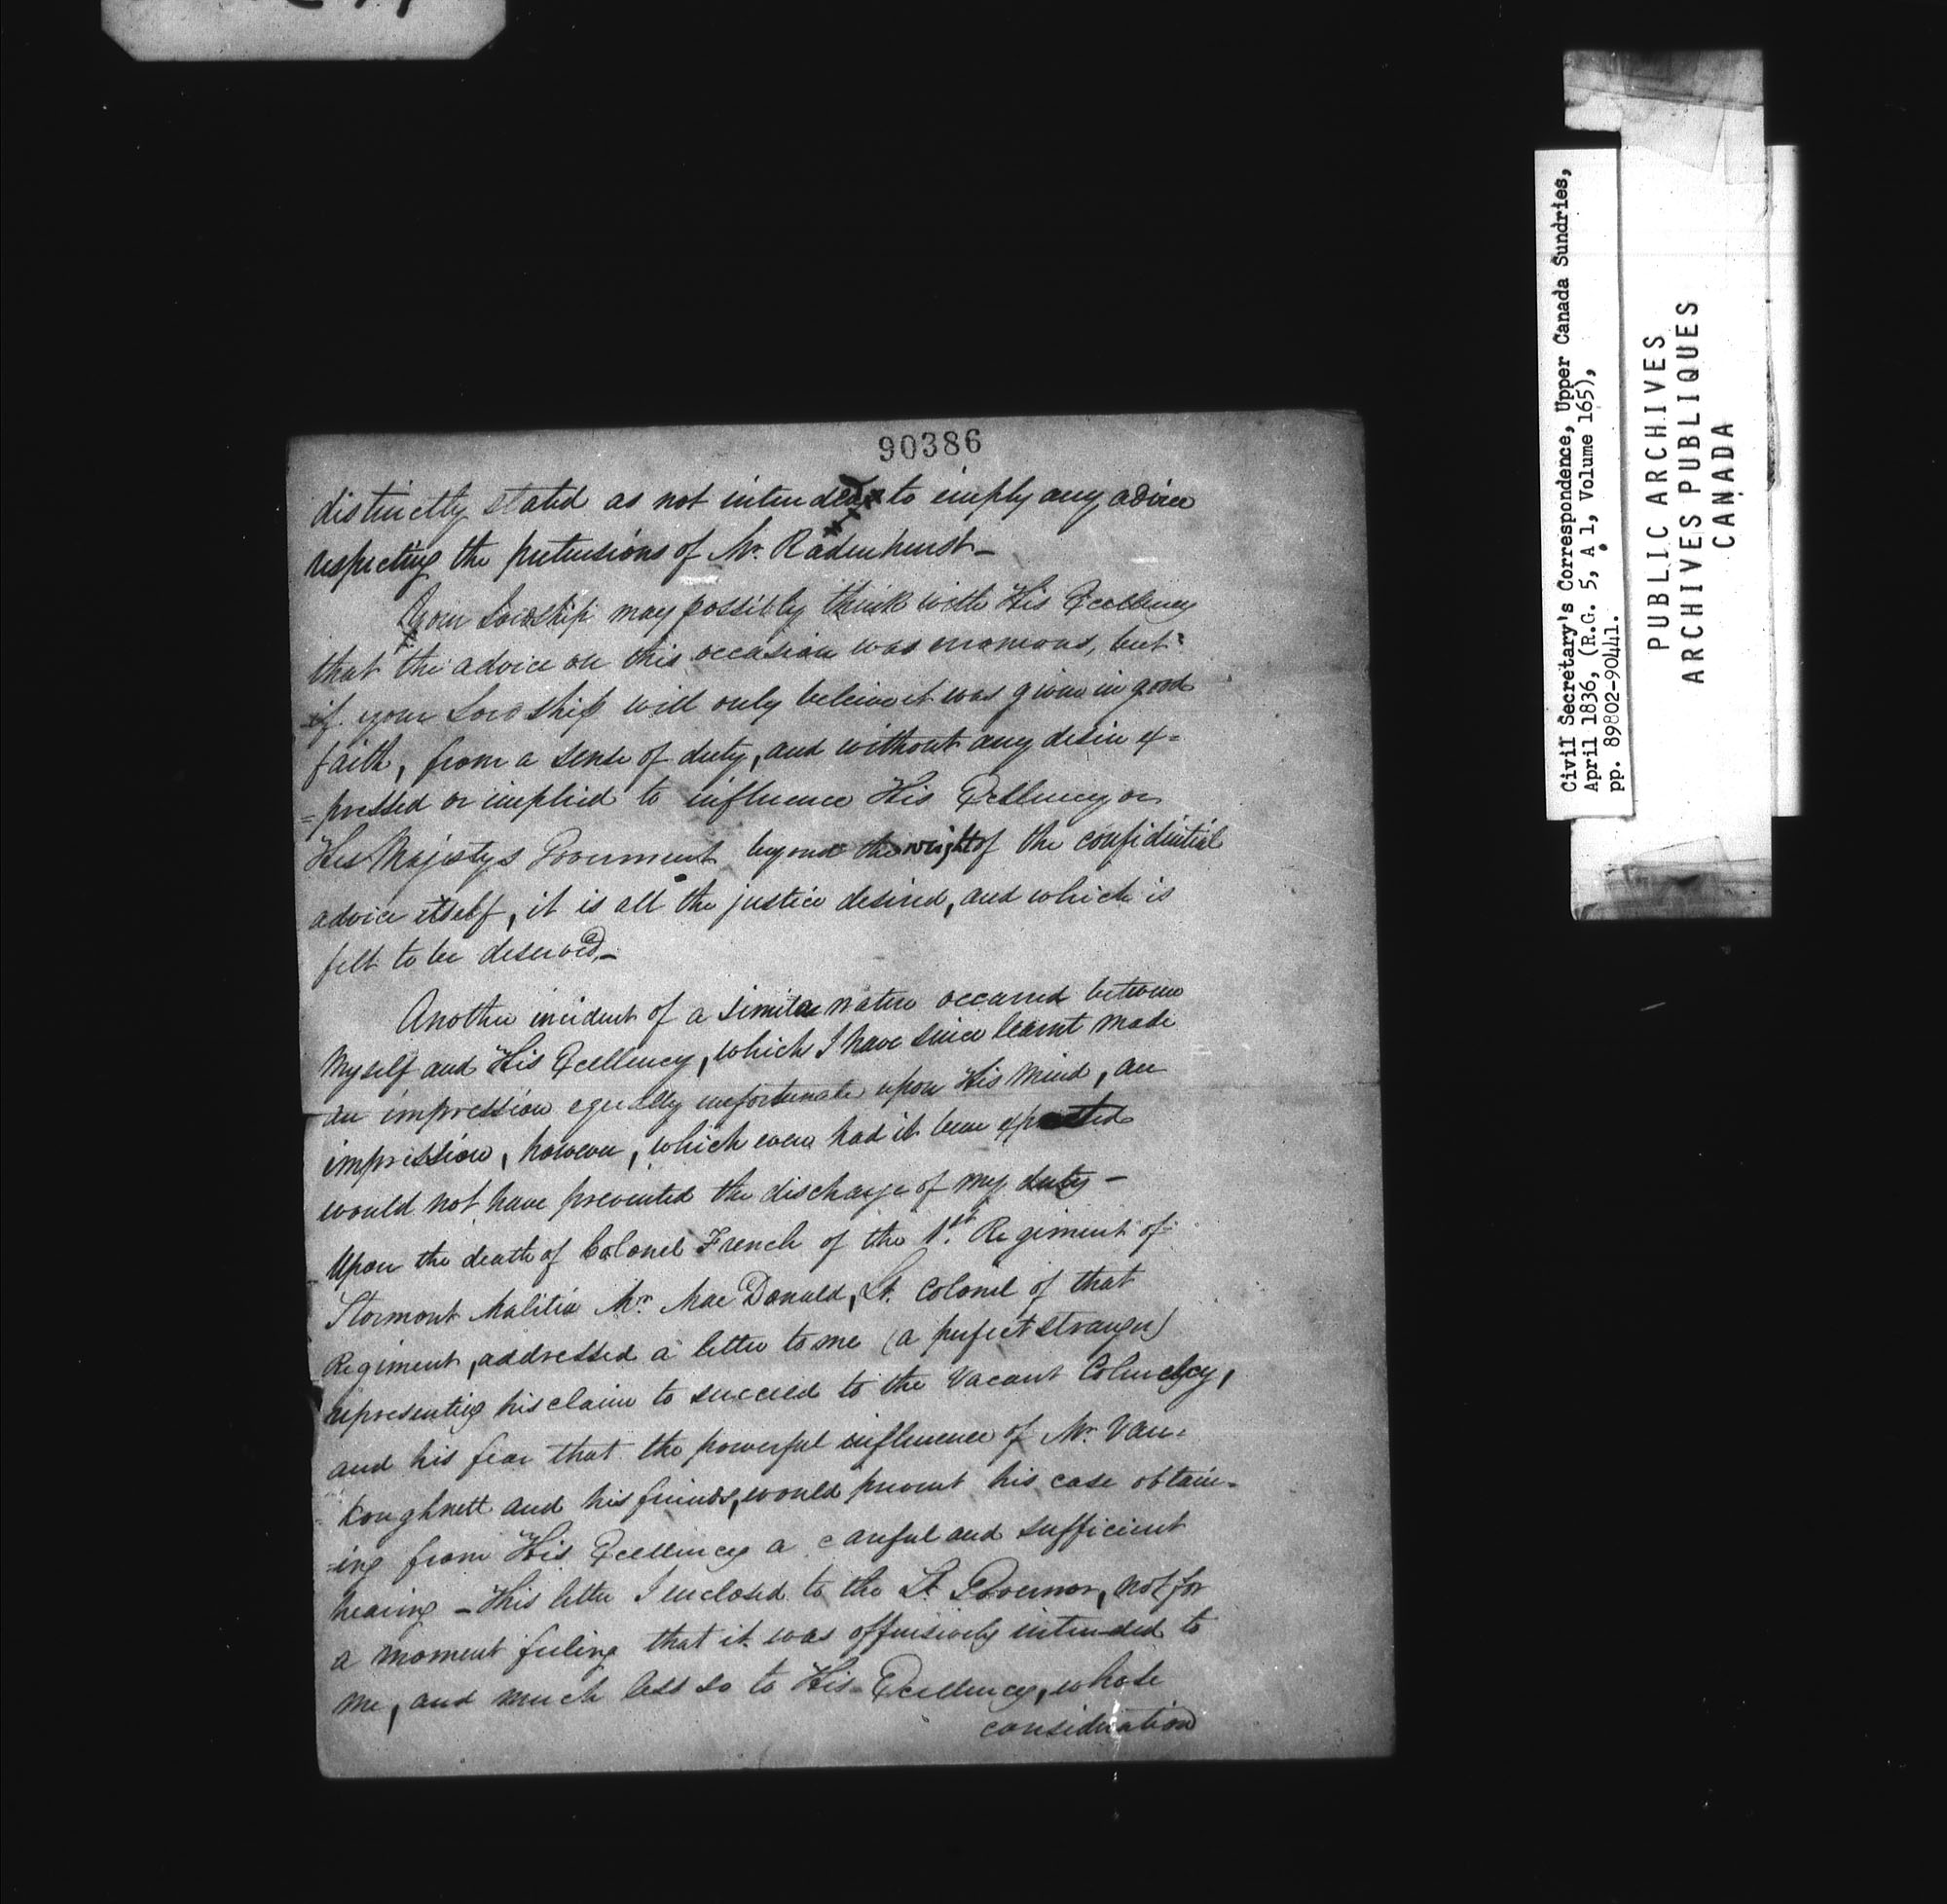 90386
distinctly stated as not intended to imply any advice
respecting the pretensions of Mr. Radenhurst—
Your Lordship may possibly think with His Excellency
that the advice on this occasion was erroneous, but
if your Lordship will only believe it was given in good
faith, from a sense of duty, and without any desire ex=
=pressed or implied to influence His Excellency or
His Majestys Government beyond the weight of the confidential
advice itself, it is all the justice desired, and which is
felt to be deserved—
Another incident of a similar nature occurred between
Myself and His Excellency, which I have since learnt made
an impression equally unfortunate upon His Mind, an
impression, however, which even had it been expected
would not have prevented the discharge of my duty—
Upon the death of Colonel French of the 1st. Regiment of
Stormont Malitia Mr. Mac Donald, Lt. Colonel of that
Regiment, addressed a letter to me (a perfect stranger)
representing his claim to succeed to the Vacant Colonelcy,
and his fear that the powerful influence of Mr. Van=
Koughnett and his friends, would prevent his case obtain=
=ing from His Excellency a careful and sufficient
hearing — This letter I enclosed to the Lt. Governor, not for
a moment feeling that it was offensively intended to
me, and much less so to His Excellency, whose
consideration
Civil Secretary's Correspondence, Upper Canada Sundries,
April 1836, (R.G. 5, A 1, Volume 165),
pp. 89802-90441.
PUBLIC ARCHIVES
ARCHIVES PUBLIQUES
CANADA